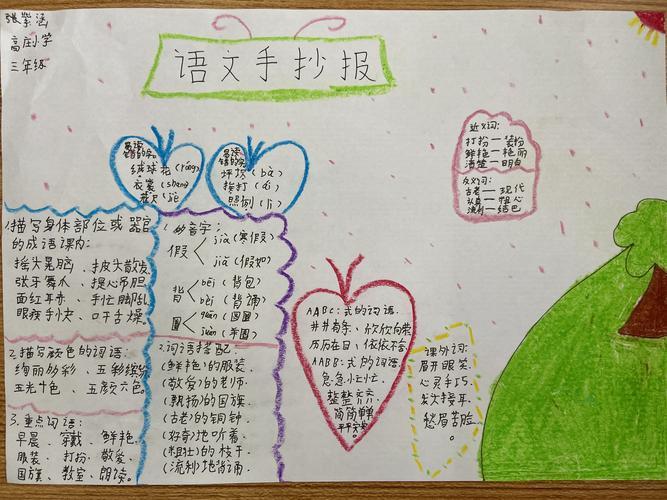 张紫涵
高庄小学
三年级
语文手抄报
易读错的字:
绒球花(róng)
衣裳(shang)
易读错的字:
坪坝(bà)
挨打(ái)
近义词:
打扮—装扮
鲜艳—艳丽
清楚—明白
反义词:
古老—现代
认真—粗心
流利—结巴
1.描写身体部位或器官
的成语课内:
摇头晃脑、披头散发
张牙舞爪、提心吊胆
面红耳赤、手忙脚乱
眼疾手快、口干舌燥。
2.描写颜色的词语:
绚丽多彩、五彩缤纷
五光十色、五颜六色。
3.重点词语:
早晨、穿戴、鲜艳
服装、打扮、敬爱、
国旗、教室、朗读。
1.多音字:
假
jià(寒假)
jiǎ(假如)
背
bēi(背包)
bèi(背诵)
圈
quān(圆圈)
juàn(羊圈)
2.词语搭配
(鲜艳)的服装
(敬爱)的老师
(飘扬)的国旗
(古老)的铜钟
(好奇)地听着
(粗壮)的枝干
(流利)地背诵
AABC:式的词语
井井有条、欣欣向荣
历历在目、依依不舍
ABB:式的词语
急急忙忙、
整整齐齐
简简单单
平平安安
课外词:
眉开眼笑、
心灵手巧
愁眉苦脸
。